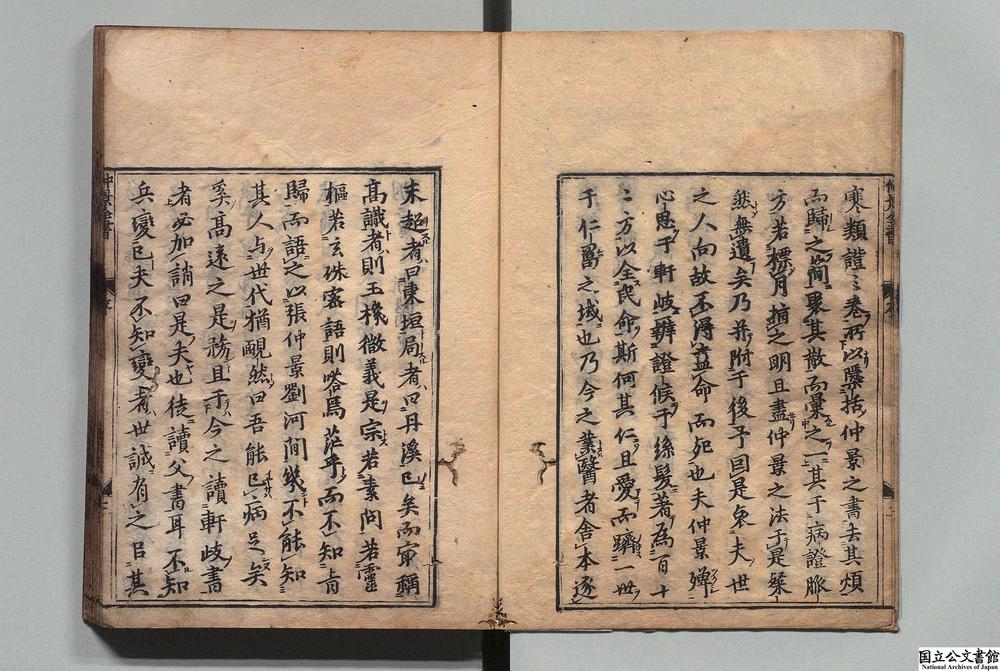 寒類證三卷所以隱括仲景之書去其煩
而歸之簡聚其散而彙之一其于病證脈
方若標月指之明且盡仲景之法于是粲
然無遺矣乃并附于後予因是哀夫世
之人向故不得盡命而死也夫仲景殫
心思于軒岐辨證候于絲髮著為百十
二方以全民命斯何其仁且愛而躋一世
于仁壽之域也乃今之業醫者舍本逐
末超者曰東垣局者曰丹溪已矣而最稱
高識者則玉機微義是宗若素問若靈
樞若玄珠密語則嗒焉茫乎而不知旨
歸而語之以張仲景劉河間幾不能知
其人与世代猶靦然曰吾能已病足矣
奚高遠之是務且于今之讀軒岐書
者必加誚曰是夫也徒讀父書耳不知
兵變已夫不知變者世誠有之以其
国立公文書館
National Archives of Japan